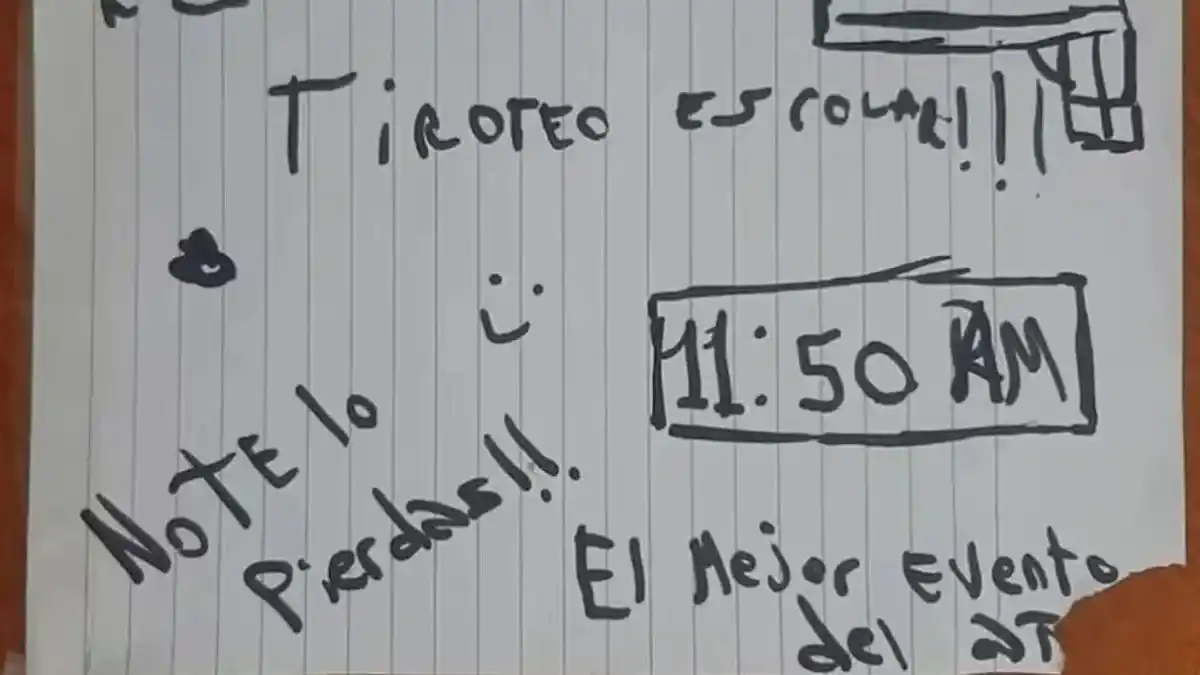 TiROTEO ESCOLAR!!!
11:50 AM
NO TE lo
pierdas!!.
El Mejor Evento
del